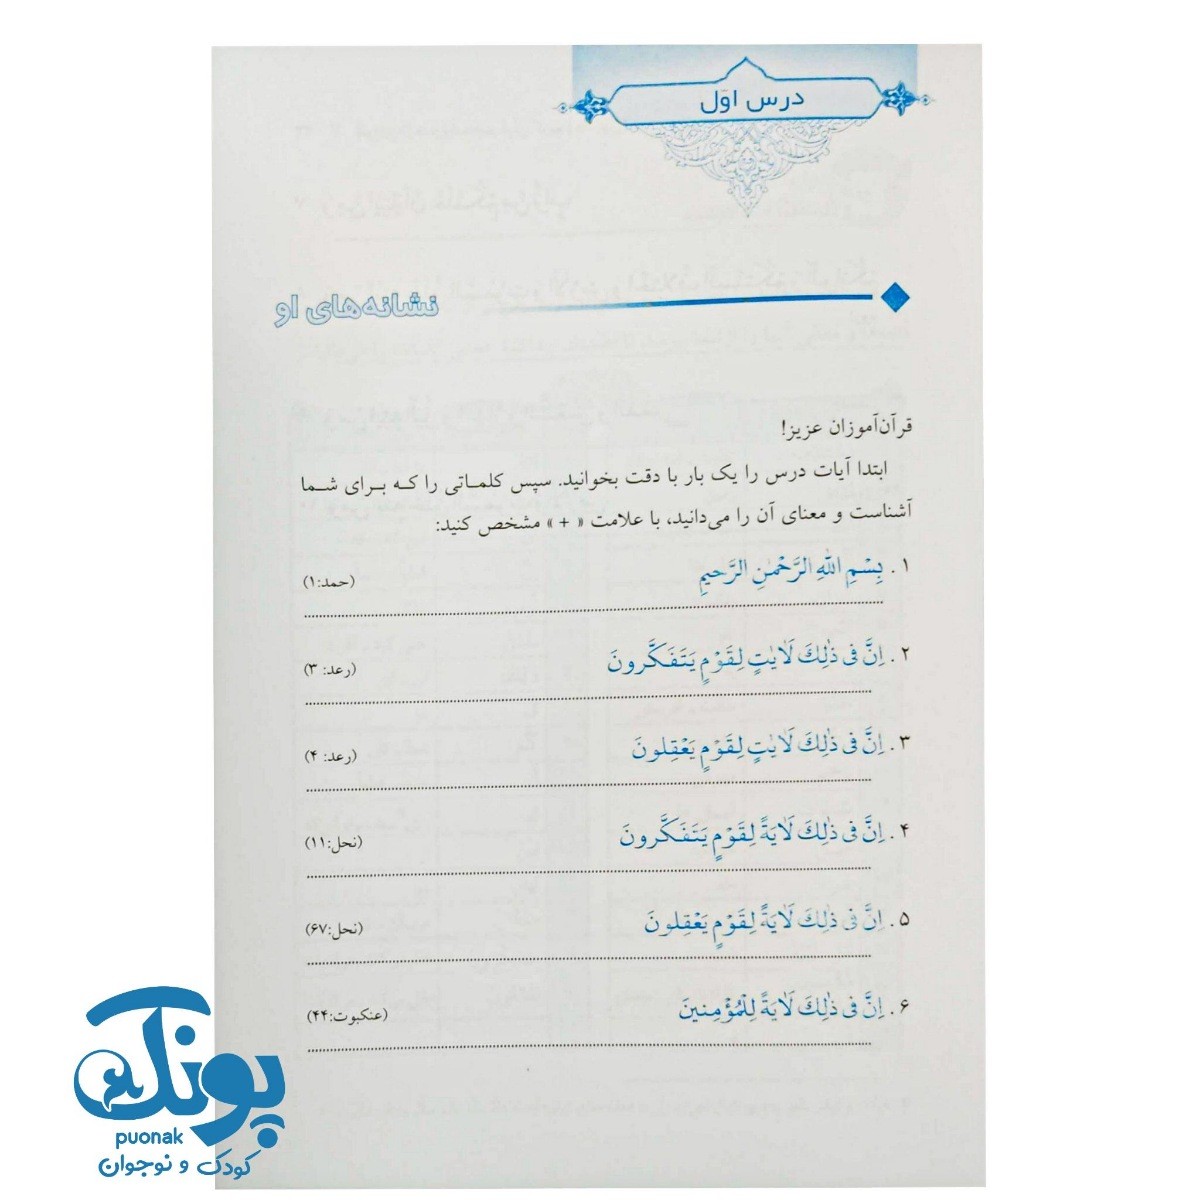 درس اوّل
نشانه‌های او
قرآن‌آموزان عزیز!
ابتدا آیات درس را یک بار با دقت بخوانید. سپس کلمـاتی را کـه بـرای شـما
آشناست و معنای آن را می‌دانید، با علامت « + » مشخص کنید:
۱ . بِسْمِ اللّٰهِ الرَّحْمٰنِ الرَّحیمِ (حمد:۱)
۲ . اِنَّ فی ذٰلِكَ لَاٰیٰتٍ لِقَوْمٍ یَتَفَكَّرونَ (رعد: ۳)
۳ . اِنَّ فی ذٰلِكَ لَاٰیٰتٍ لِقَوْمٍ یَعْقِلونَ (رعد: ۴)
۴ . اِنَّ فی ذٰلِكَ لَاٰیَةً لِقَوْمٍ یَتَفَكَّرونَ (نحل:۱۱)
۵ . اِنَّ فی ذٰلِكَ لَاٰیَةً لِقَوْمٍ یَعْقِلونَ (نحل:۶۷)
۶ . اِنَّ فی ذٰلِكَ لَاٰیَةً لِلْمُؤْمِنینَ (عنکبوت:۴۴)
پونک
puonak
کودک و نوجوان